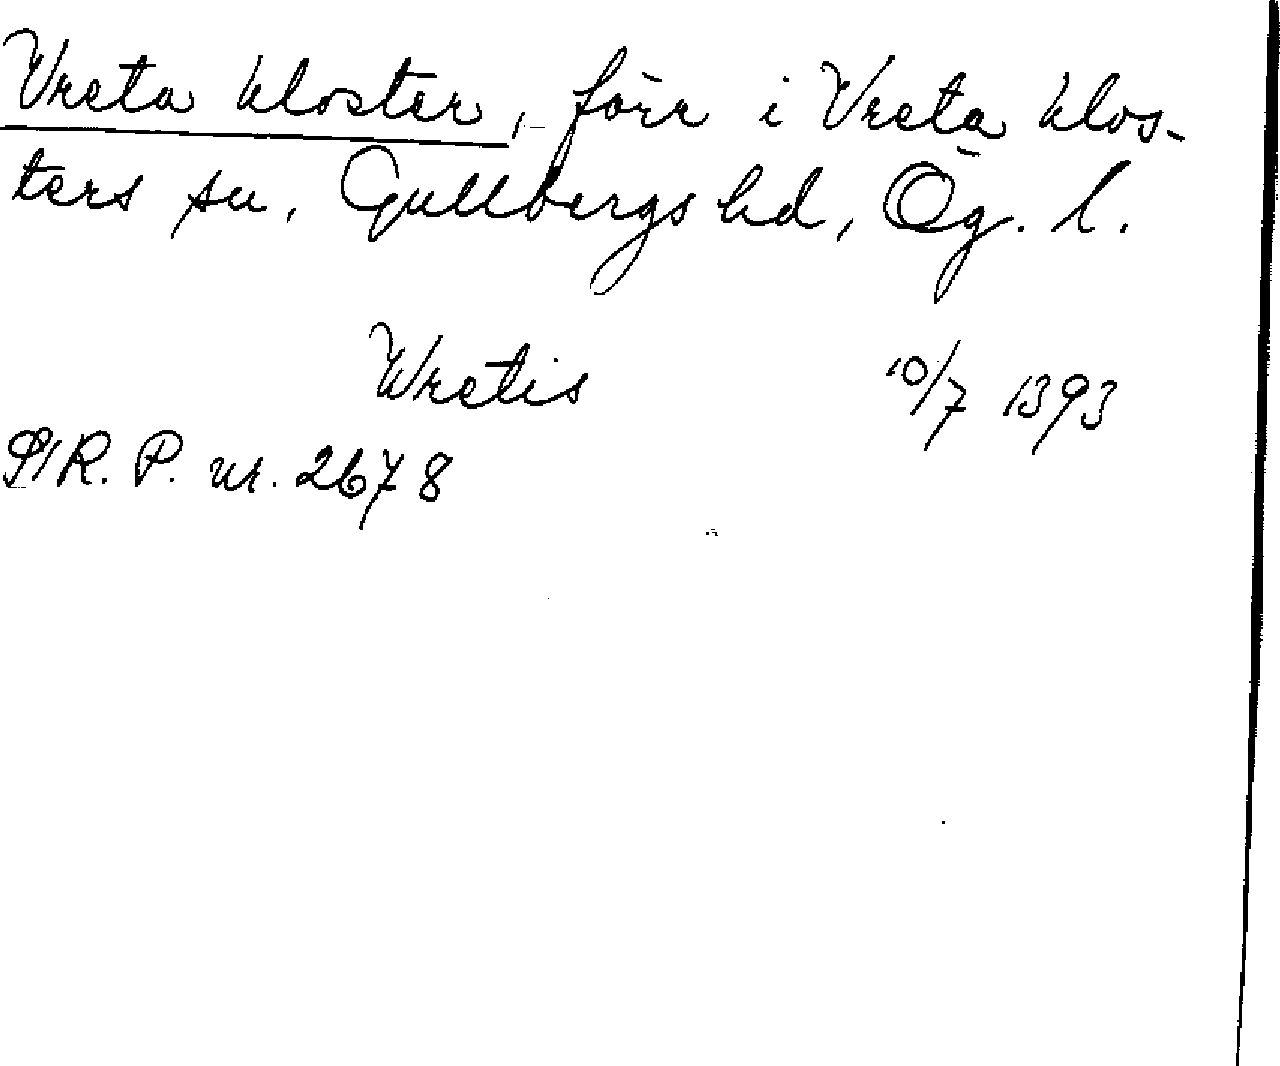 Vreta kloster, förr i Vreta klos-
ters sn, Gullbergs hd, Ög. l.
Wretis 10/7 1393
SvR. P. nr. 2678